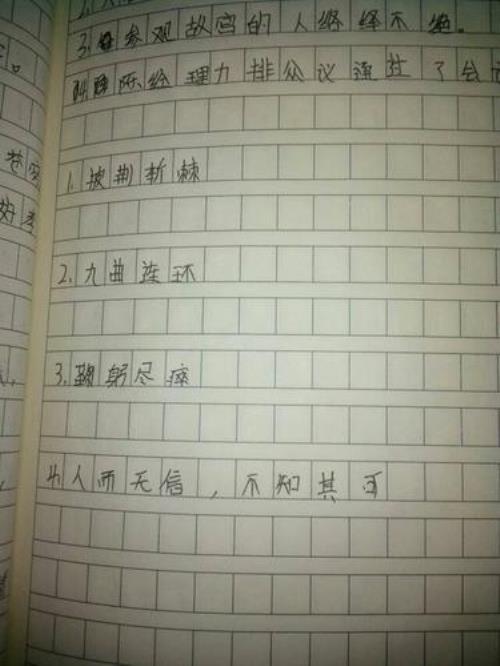 3.参观故宫的人络绎不绝。
4.陈经理力排众议通过了会
1.披荆斩棘
2.九曲连环
3.鞠躬尽瘁
4.人而无信，不知其可